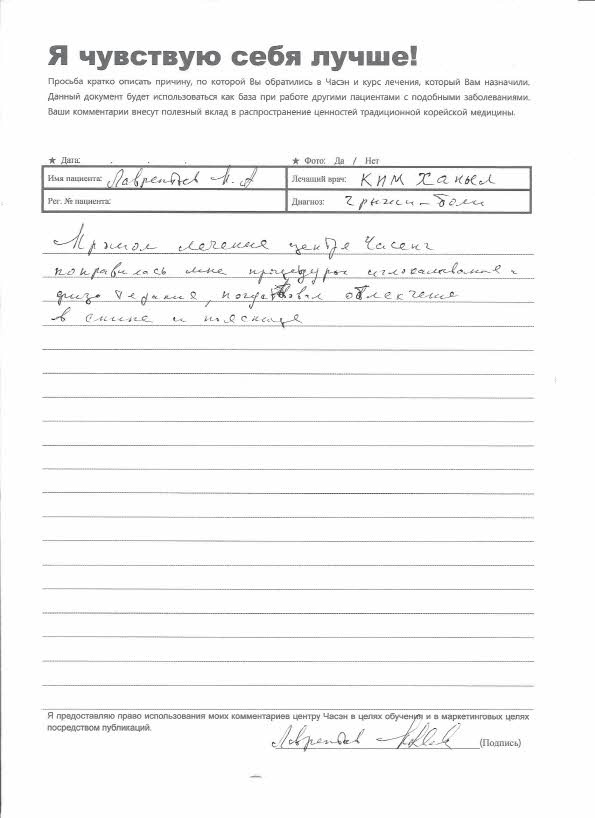 Я чувствую себя лучше!
Просьба кратко описать причину, по которой Вы обратились в Часэн и курс лечения, который Вам назначили.
Данный документ будет использоваться как база при работе другими пациентами с подобными заболеваниями.
Ваши комментарии внесут полезный вклад в распространение ценностей традиционной корейской медицины.
★ Дата: . . . ★ Фото: Да / Нет
Имя пациента: Лаврентьев Лечащий врач: КИМ Ханыл
Рег. № пациента: Диагноз: Грыжи-боли
лечение центре Часенг
понравилась мне процедуры иглокалывание и
физо терапие, почувствовал облегчение
в спине и пояснице
Я предоставляю право использования моих комментариев центру Часэн в целях обучения и в маркетинговых целях
посредством публикаций.
Лаврентьев (Подпись)